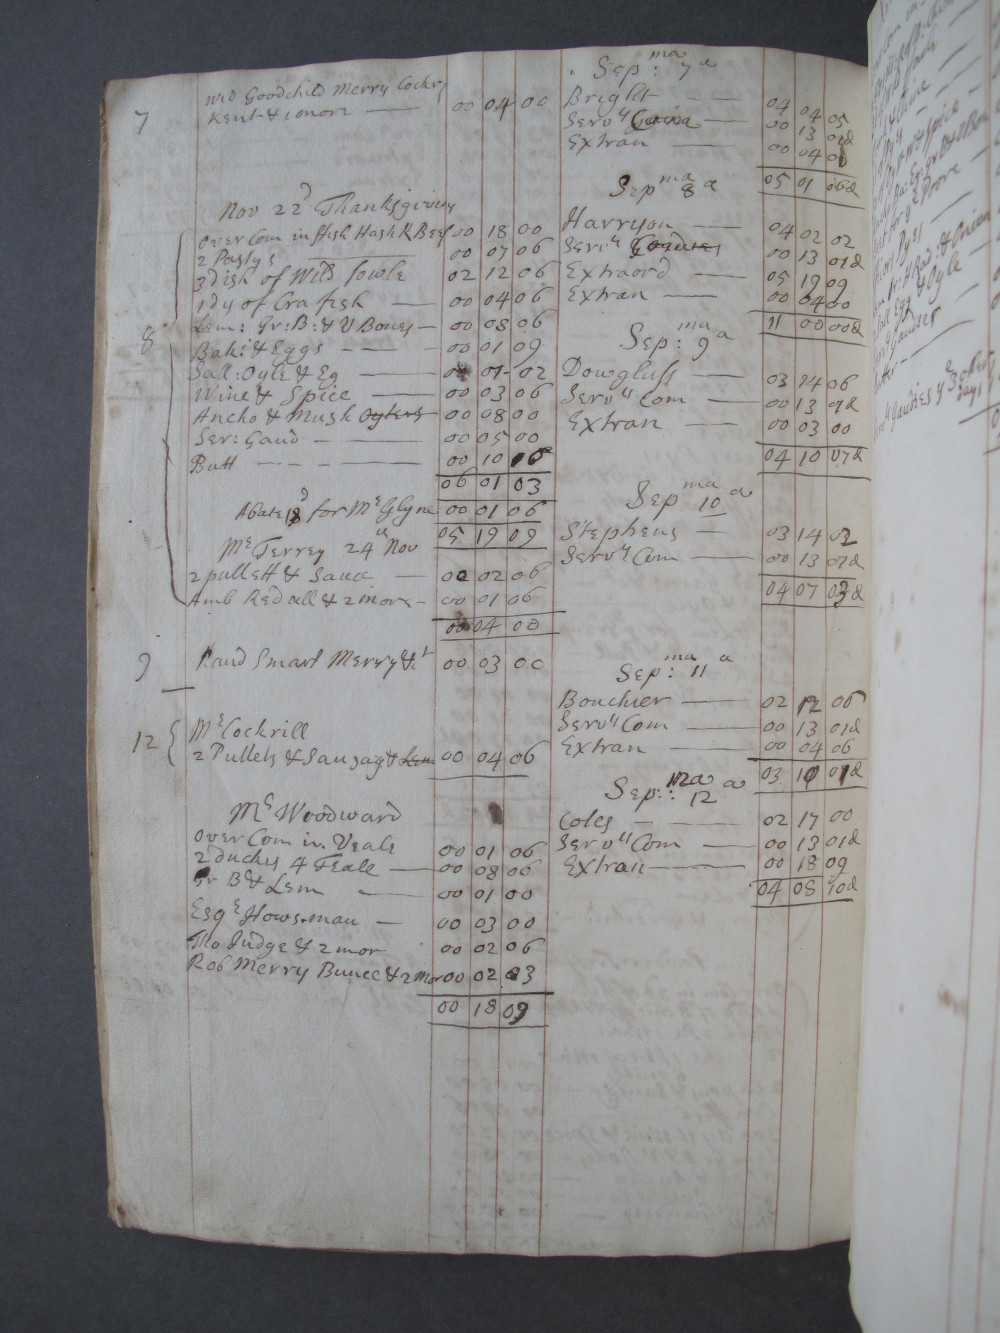 7 Wid Goodchild Merry Cockr
Kent & 1 more — 00 04 00
Nov 22d Thanksgiving
Over Com in ffish Hash R Beef 00 18 00
2 Pastys — 00 07 06
3 dish of Wild fowle 02 12 06
1 dy of Crafish — 00 04 06
8 Lem: Gr: B: & V Bones — 00 08 06
Bak: & Eggs — 00 01 09
Sall: Oyle & Eg — 00 01 02
Wine & Spice — 00 03 06
Ancho & Mush Oysters 00 08 00
Ser: Gaud — 00 05 00
Butt — 00 10
06 01 03
Abate 18d for Mr Glyne 00 01 06
05 19 09
Mr Terrey 24th Nov
2 pullett & Sauce — 00 02 06
Amb Redall & 2 more — 00 01 06
00 04 00
9 Rand Smart Merry & 1 00 03 00
12 Mr Cockrill
2 Pullets & Sausag & Lem 00 04 06
Mr Woodward
Over Com in Veale 00 01 06
2 Ducks 4 Teale — 00 08 06
Gr B & Lem — 00 01 00
Esqr Howsman — 00 03 00
Tho Judge & 2 mor 00 02 06
Rob Merry Bunce & 2 Mor 00 02 03
00 18 09
Sep: ma 7a
Bright — 04 04 05
Servts — 00 13 01d
Extran — 00 04 00
05 01 06d
Sepma 8a
Harryson — 04 02 02
Servts Gaudies 00 13 01d
Extraord — 05 19 09
Extran — 00 04 00
11 00 00d
Sep: ma 9a
Dowglass — 03 14 06
Servts Com — 00 13 01d
Extran — 00 03 00
04 10 07d
Sep ma 10a
Stephens — 03 14 02
Servts Com — 00 13 01d
04 07 03d
Sep: ma 11a
Bouchier — 02 12 06
Servts Com — 00 13 01d
Extran — 00 04 06
03 10 01d
Sep: ma 12a
Coles — 02 17 00
Servts Com — 00 13 01d
Extran — 00 18 09
04 08 10d